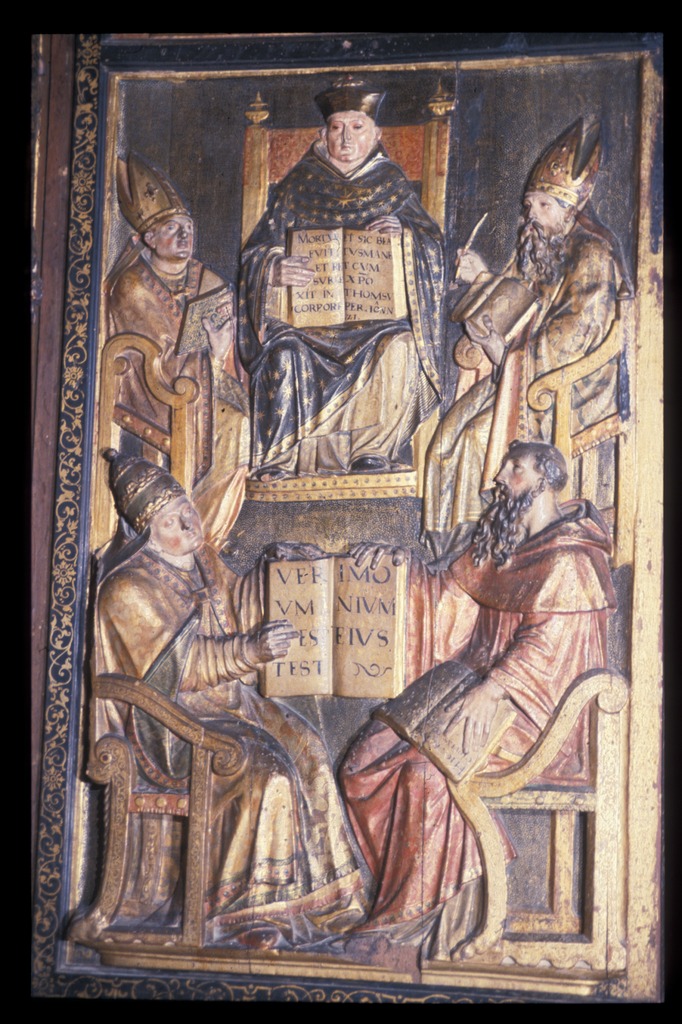 MORTVA ET SIC BE
EVIT TVSMANE
ET RET CVM
SVRE XPO
XIT IN THOMSV
CORPOR PER
VERIMO
VM NIVM
ES EIVS.
TEST